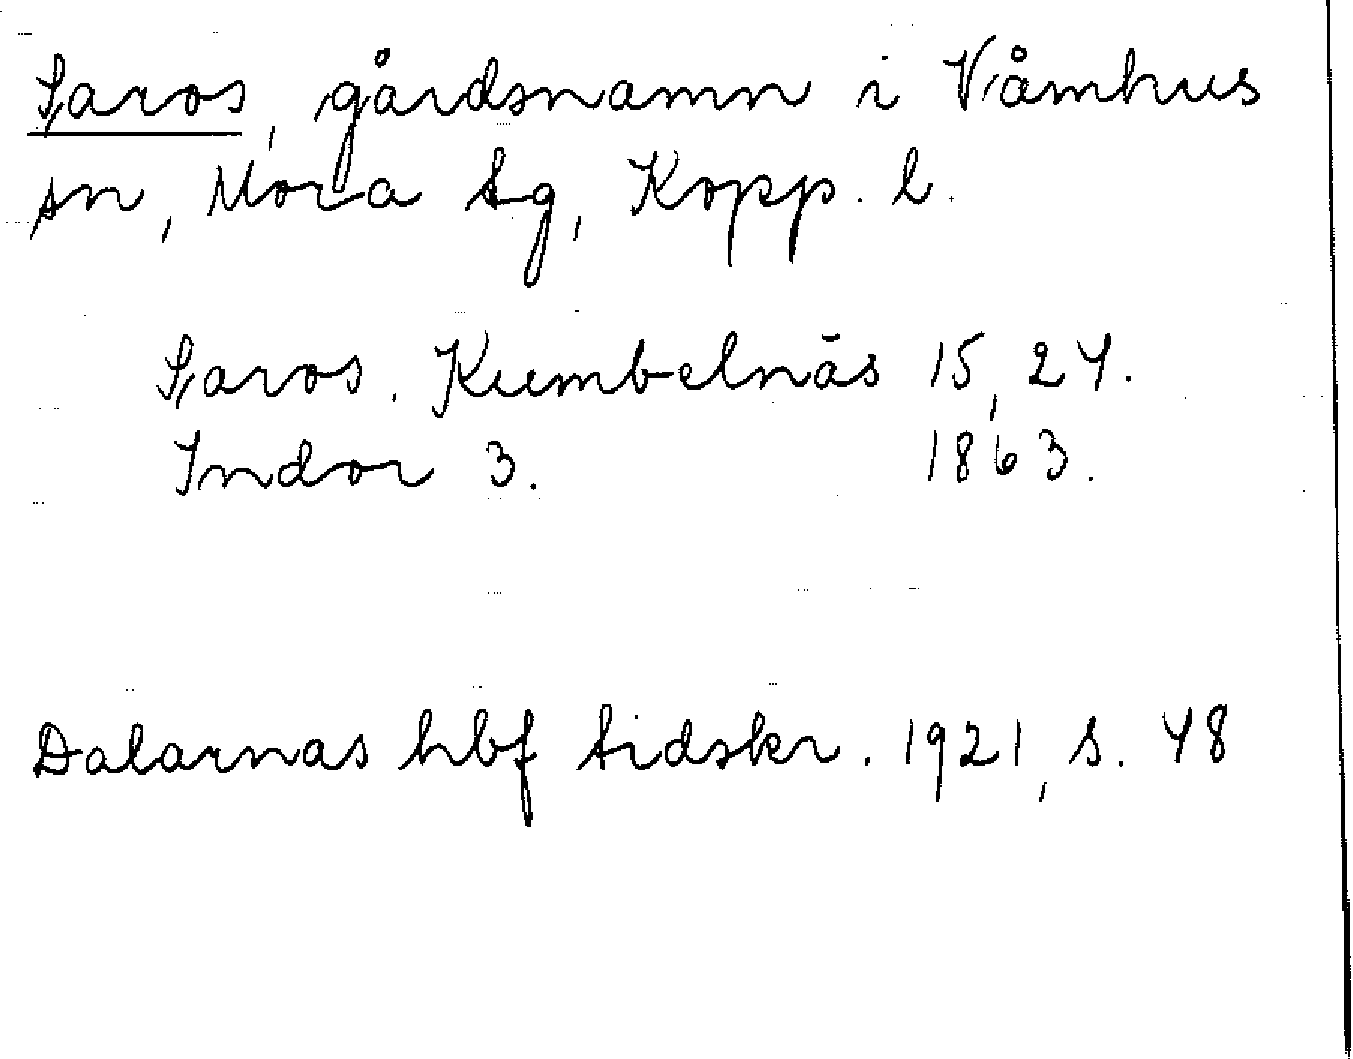 Saros, gårdsnamn i Våmhus
sn, Mora tg, Kopp. l.
Saros. Kumbelnäs 15, 24.
Indor 3. 1863.
Dalarnas hbf tidskr. 1921, s. 48